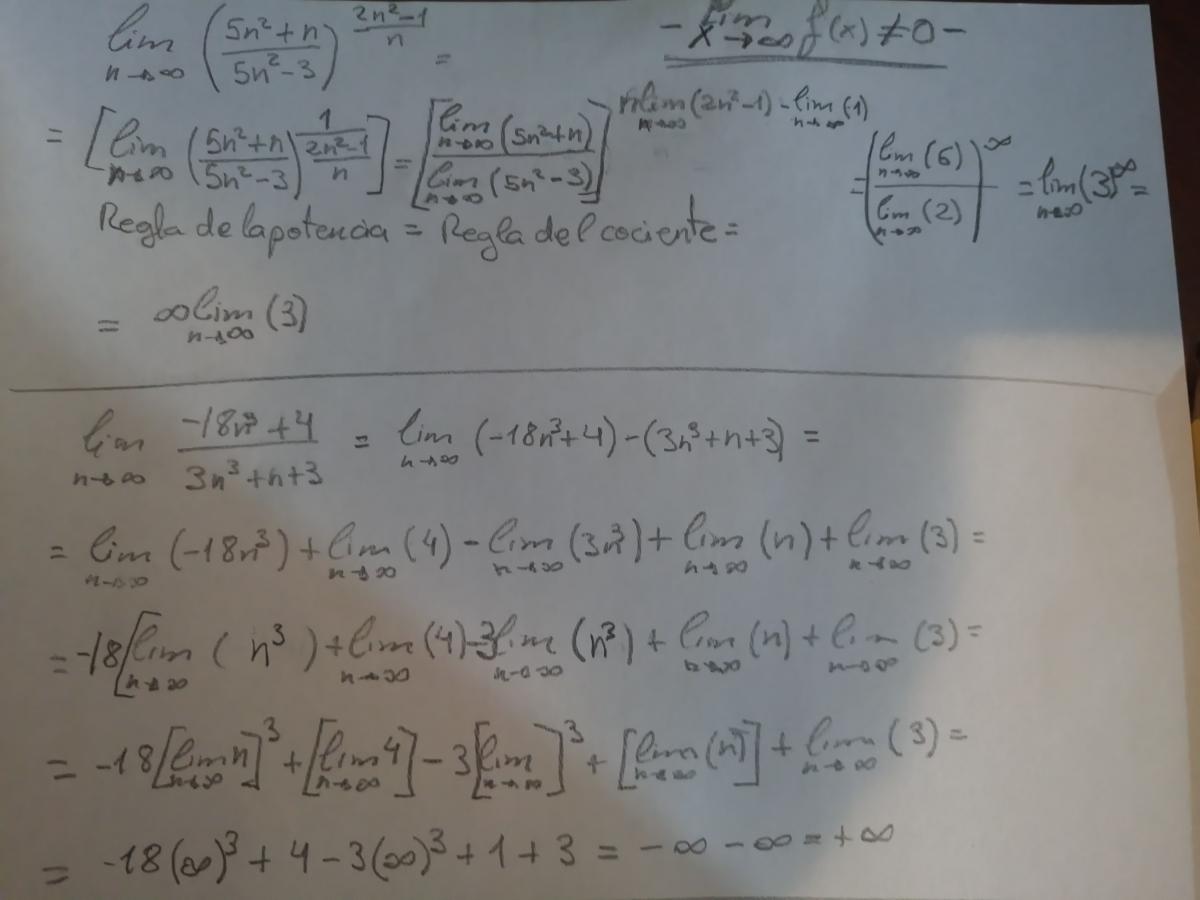 lim n→∞ ((5n²+n)/(5n²-3))^((2n²-1)/n) =
- lim x→∞ f(x) ≠ 0 -
= [lim n→∞ ((5n²+n)/(5n²-3))^(1/((2n²-1)/n))] = [lim n→∞ (5n²+n) / lim n→∞ (5n²-3)]^(lim n→∞ (2n²-1) - lim n→∞ (-1))
= (lim n→∞ (6) / lim n→∞ (2))^∞ = lim n→∞ (3)^∞ =
Regla de la potencia = Regla del cociente =
= ∞ lim n→∞ (3)
lim n→∞ (-18n³+4)/(3n³+n+3) = lim n→∞ (-18n³+4)-(3n³+n+3) =
= lim n→∞ (-18n³) + lim n→∞ (4) - lim n→∞ (3n³) + lim n→∞ (n) + lim n→∞ (3) =
= -18[lim n→∞ (n³) + lim n→∞ (4) -3 lim n→∞ (n³) + lim n→∞ (n) + lim n→∞ (3) =
= -18[lim n→∞ n]³ + [lim n→∞ 4] - 3[lim n→∞]³ + [lim n→∞ (n)] + lim n→∞ (3) =
= -18(∞)³ + 4 - 3(∞)³ + 1 + 3 = -∞ - ∞ = +∞